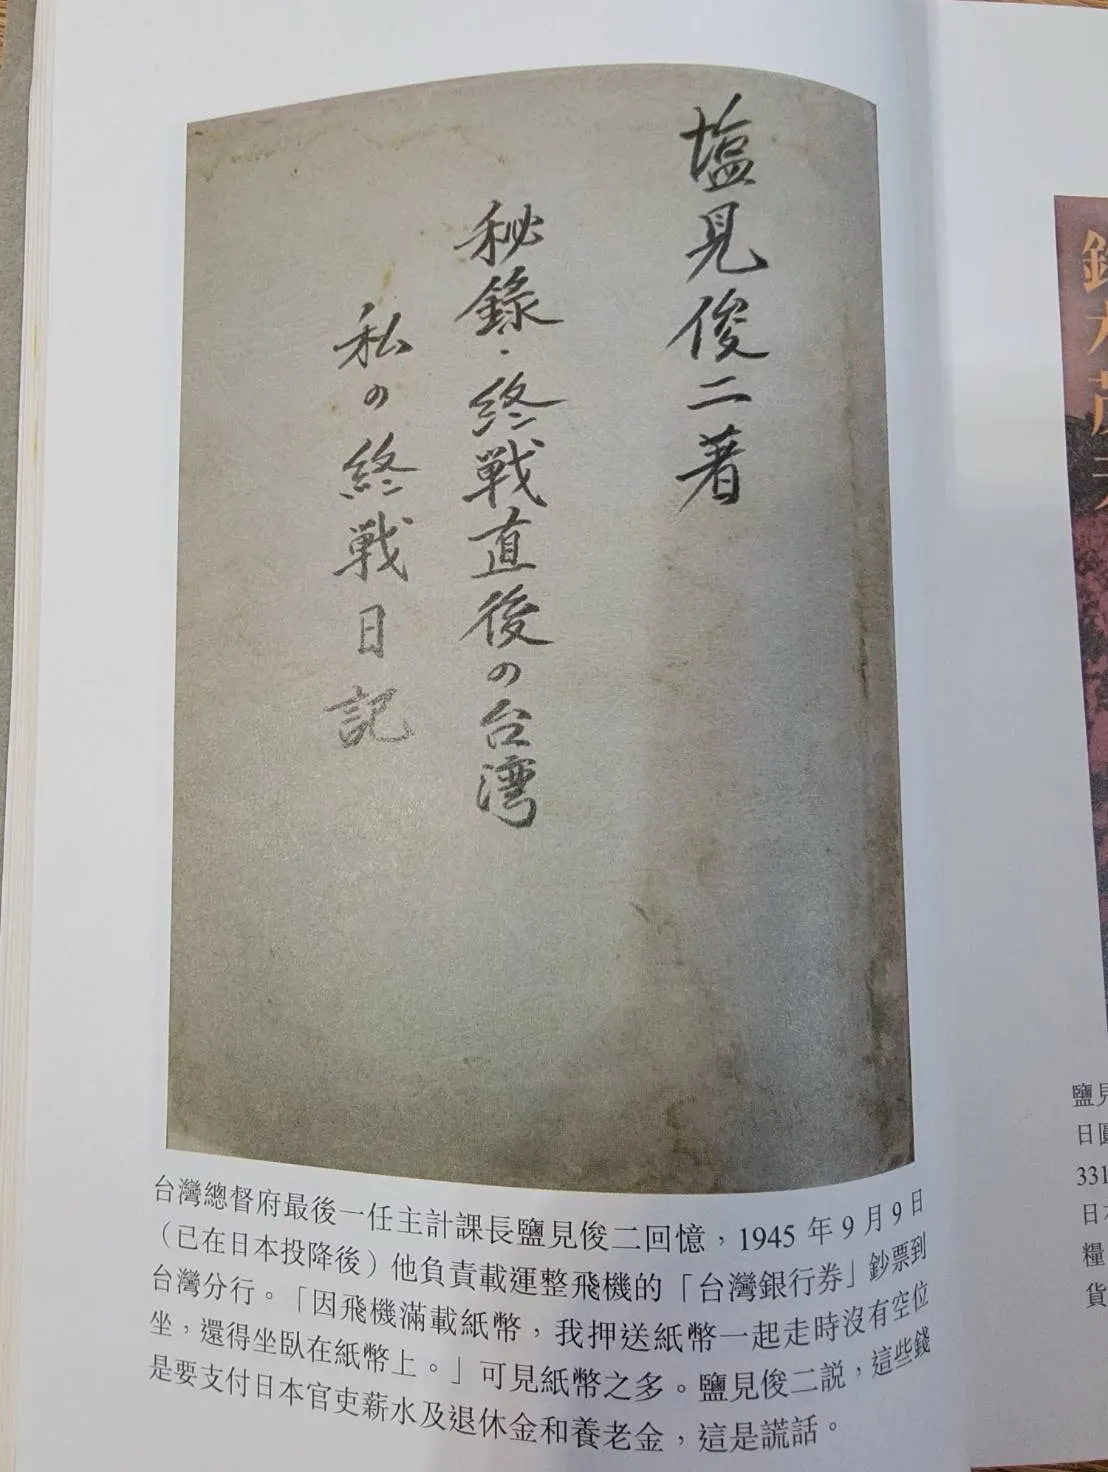 塩見俊二著
秘録・終戦直後の台湾
私の終戦日記
台灣總督府最後一任主計課長鹽見俊二回憶，1945 年 9 月 9 日
（已在日本投降後）他負責載運整飛機的「台灣銀行券」鈔票到
台灣分行。「因飛機滿載紙幣，我押送紙幣一起走時沒有空位
坐，還得坐臥在紙幣上。」可見紙幣之多。鹽見俊二説，這些錢
是要支付日本官吏薪水及退休金和養老金，這是謊話。
鹽見
日圓
331
日本
糧
貨